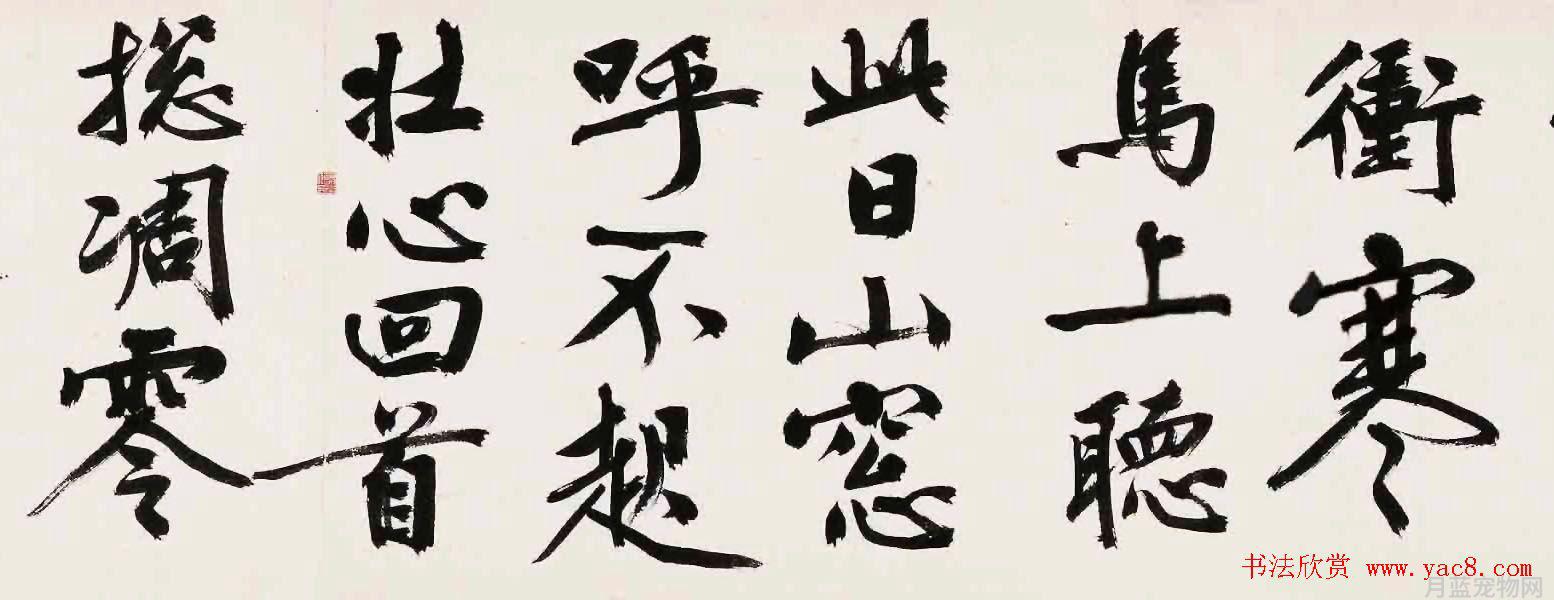 衝寒
馬上聽
此日山窓
呼不起
壯心回首
摠凋零
书法欣赏 www.yac8.com
月蓝宠物网